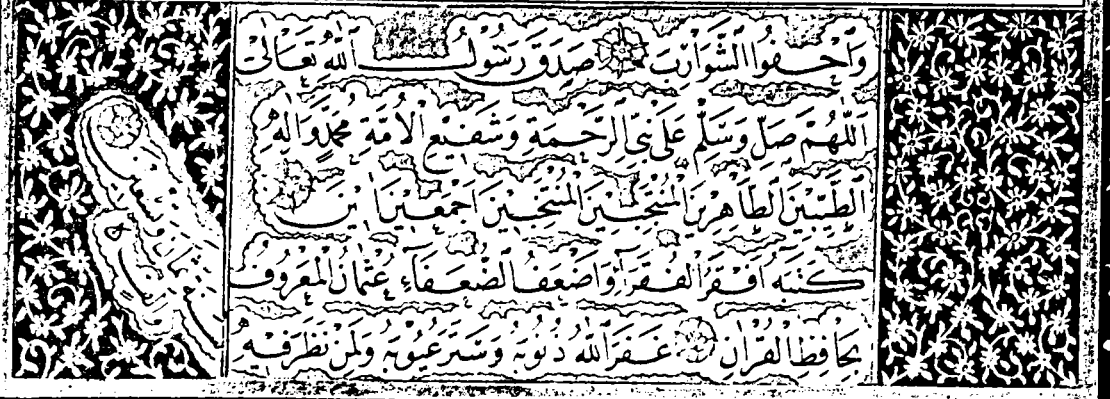 وَاَحْفُوا الشَّوَارِبَ صَدَقَ رَسُولُ اللهِ تَعَالٰى
اَللّٰهُمَّ صَلِّ وَسَلِّمْ عَلٰى نَبِىِّ الرَّحْمَةِ وَشَفِيعِ الْاُمَّةِ مُحَمَّدٍ وَاٰلِهِ
الطَّيِّبِينَ الطَّاهِرِينَ الْمُنْتَجَبِينَ اَجْمَعِينَ اٰمِينَ
كَتَبَهُ اَفْقَرُ الْفُقَرَاءِ وَاَضْعَفُ الضُّعَفَاءِ عُثْمَانُ الْمَعْرُوفُ
بِحَافِظِ الْقُرْاٰنِ غَفَرَ اللهُ ذُنُوبَهُ وَسَتَرَ عُيُوبَهُ وَلِمَنْ نَظَرَ فِيهِ